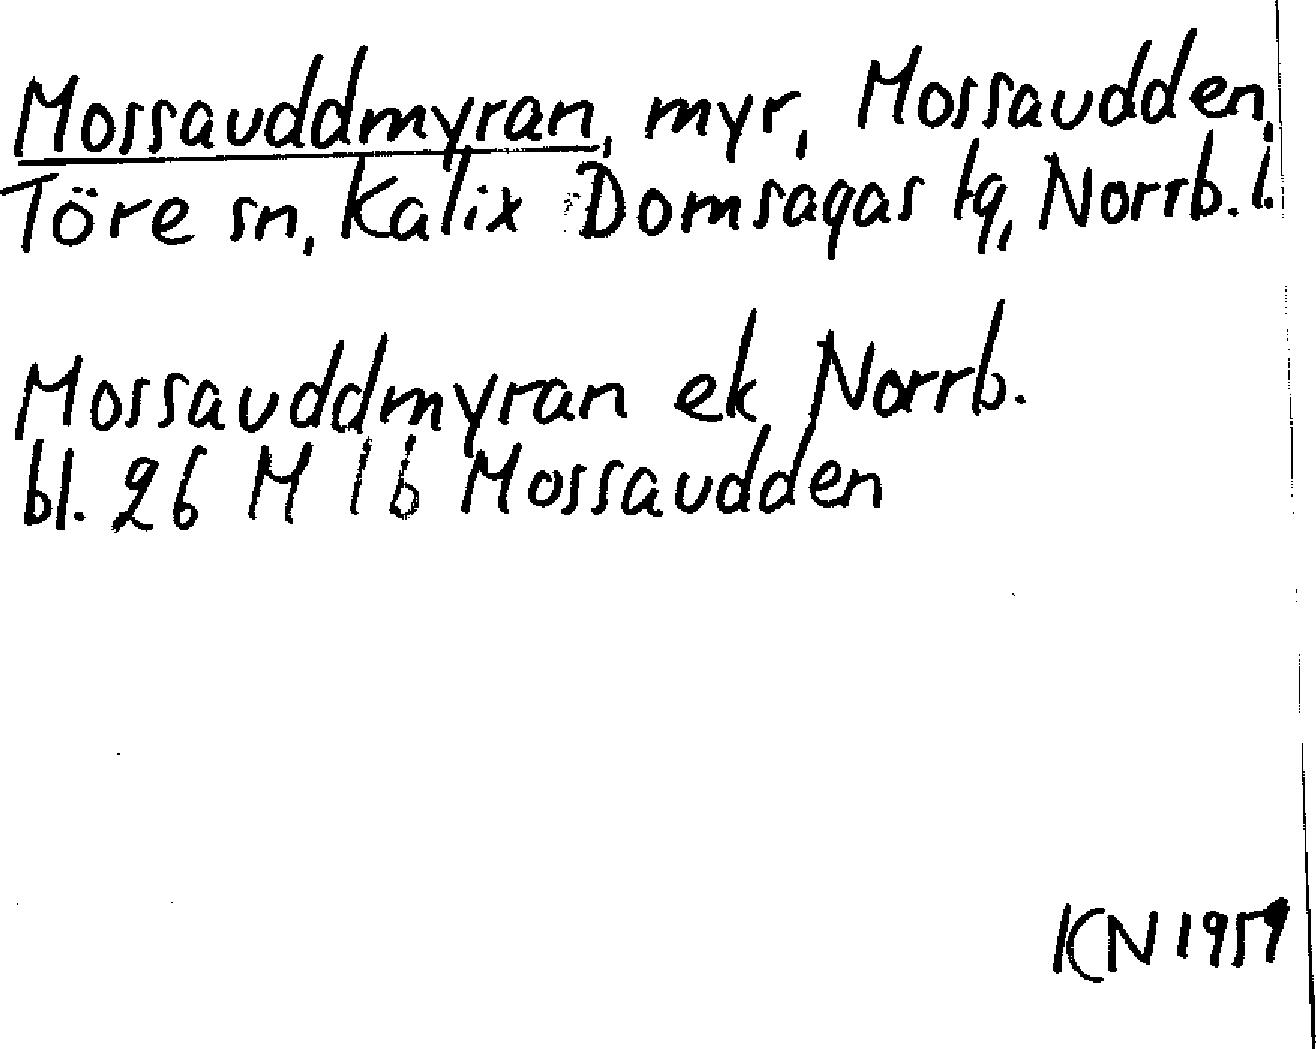 Mossauddmyran, myr, Mossaudden,
Töre sn, Kalix Domsagas tg, Norrb. l.
Mossauddmyran ek Norrb.
bl. 26 M 1b Mossaudden
KN 1959